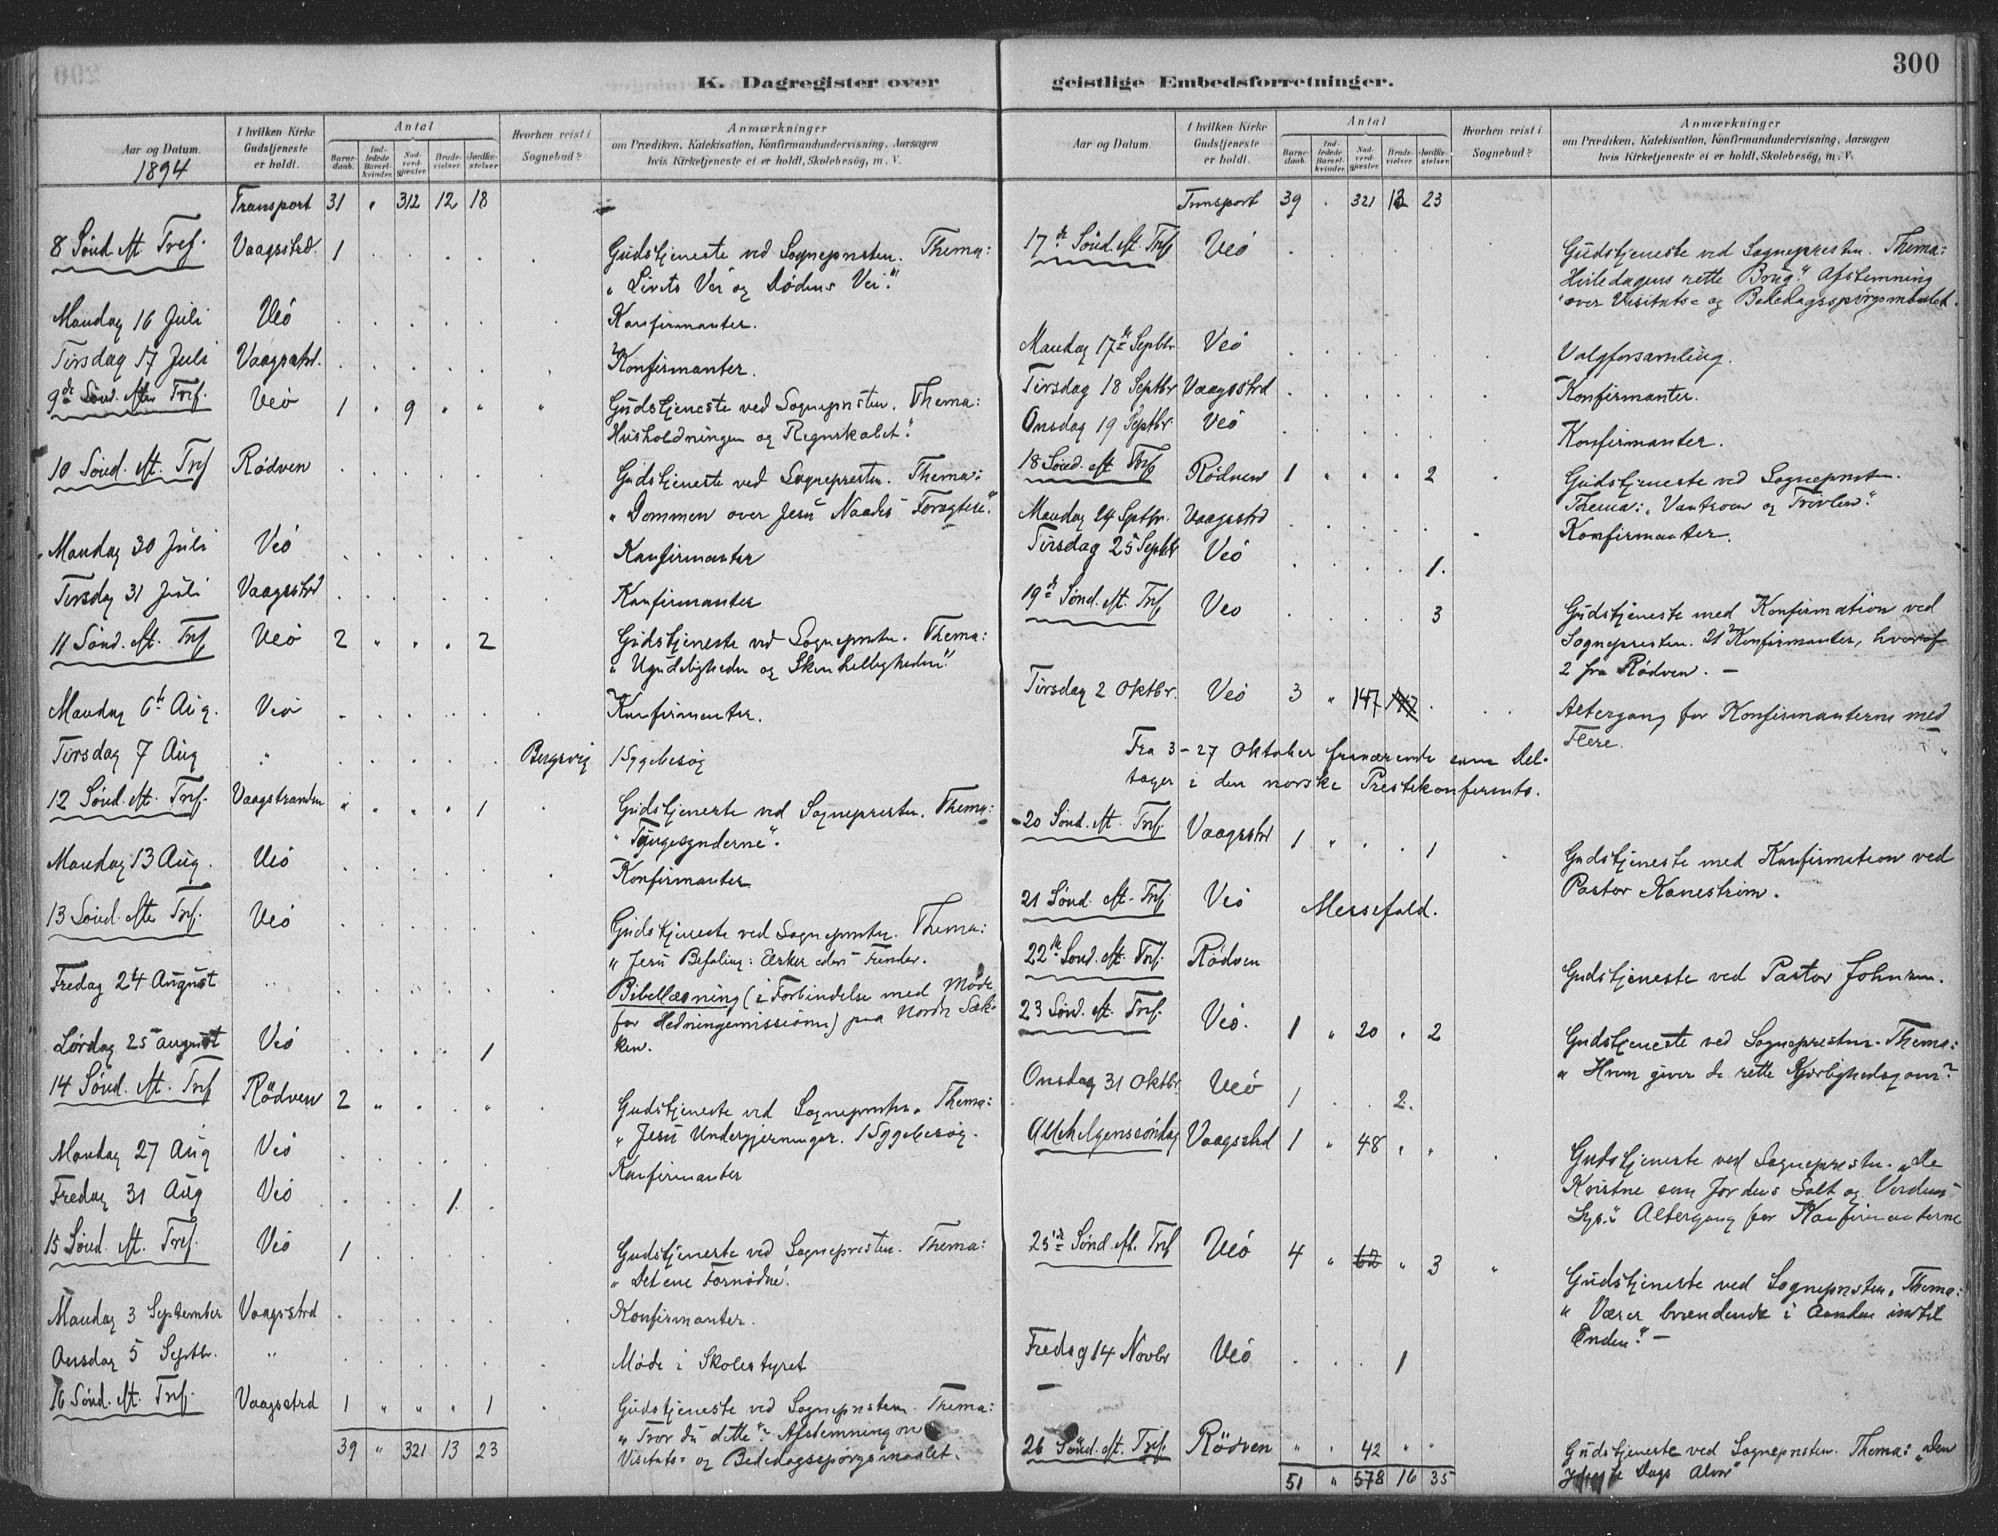 K. Dagregister over
Aar og Datum.
1894
I hvilken Kirke Gudstjeneste er holdt.
Antal
Barnedaab.
Indledede Barselkvinder.
Nadverdgjæster.
Brudevielser.
Jordfæstelser.
Hvorhen reist i Sognebud?
Anmærkninger
om Prædiken, Katekisation, Konfirmandundervisning, Aarsagen
hvis Kirketjeneste ei er holdt, Skolebesøg, m. V.
Transport 31 " 312 12 18
8 Sönd. eft. Tref. Vaagsstrd. 1 Gudstjeneste ved Sognepresten. Thema:
"Livets Vei og Dödens Vei."
Mandag 16 Juli Veö Konfirmanter.
Tirsdag 17 Juli Vaagsstrd. Konfirmanter.
9de Sönd. efter Tref. Veö 1 " 9 " " " Gudstjeneste ved Sognepresten. Thema:
Husholdningen og Regnskabet."
10 Sönd. eft. Tref Rödven Gudstjeneste ved Sognepresten. Thema:
"Dommen over Jesu Naades Foragtere."
Mandag 30 Juli Veö Konfirmanter
Tirsdag 31 Juli Vaagsstrd Konfirmanter
11 Sönd. eft. Tref Veö 2 " " " 2 Gudstjeneste ved Sognepresten. Thema:
"Ugudeligheden og Skinhelligheden."
Mandag 6te Aug. Veö Konfirmanter.
Tirsdag 7 Aug " Bergsvig 1 Sygebesög
12 Sönd. eft. Tref. Vaagstranden " " " " 1 Gudstjeneste ved Sognepresten. Thema:
"Tungesynderne".
Mandag 13 Aug. Veö Konfirmanter
13 Sönd. efter Tref. Veö Gudstjeneste ved Sognepresten. Thema:
"Jesu Befaling: Elsker eders Fiender.
Fredag 24 August Bibellæsning (i Forbindelse med Möde
for Hedningemissionen) paa Nordre Sæk-
ken.
Lördag 25 August Veö 1
14 Sönd. eft. Tref Rödven 2 " " Gudstjeneste ved Sognepresten. Thema:
"Jesu Undergjerninger. 1 Sygebesög.
Mandag 27 Aug Veö Konfirmanter
Fredag 31 Aug Veö 1.
15 Sönd. eft. Tref. Veö 1 Gudstjeneste ved Sognepresten. Thema:
"Det ene Fornödne".
Mandag 3 September Vaagsstrd Konfirmanter.
Onsdag 5 Septbr. " Möde i Skolestyret
16 Sönd. eft. Tref. Vaagsstrd 1 " " " 1 Gudstjeneste ved Sognepresten. Thema:
"Tror du dette"? Afstemning om
39 " 321 13 23 Visitats- og Bededagsspörgsmaalet.
300
geistlige Embedsforretninger.
Aar og Datum.
I hvilken Kirke Gudstjeneste er holdt.
Antal
Barnedaab.
Indledede Barselkvinder.
Nadverdgjæster.
Brudevielser.
Jordfæstelser.
Hvorhen reist i Sognebud?
Anmærkninger
om Prædiken, Katekisation, Konfirmandundervisning, Aarsagen
hvis Kirketjeneste ei er holdt, Skolebesøg, m. V.
Transport 39 . 321 13 23
17de Sönd. eft. Tref Veö Gudstjeneste ved Sognepresten. Thema:
Hviledagens rette Brug". Afstemning
over Visitats- og Bededagsspörgsmaalet.
Mandag 17de Septbr Veö Valgforsamling.
Tirsdag 18 Septbr Vaagsstrd Konfirmanter.
Onsdag 19 Septbr. Veö Konfirmanter.
18 Sönd. eft Tref Rödven 1 " " " 2 Gudstjeneste ved Sognepresten.
Thema: "Vantroen og Tvivlen".
Mandag 24 Septbr. Vaagsstrd Konfirmanter.
Tirsdag 25 Septbr Veö 1.
19de Sönd. eft. Tref Veö 3 Gudstjeneste med Konfirmation ved
Sognepresten. 21 Konfirmanter, hvoraf
2 fra Rödven. —
Tirsdag 2 Oktbr. Veö 3 " 147 Altergang for Konfirmanterne med
Flere.
Fra 3 - 27 Oktober fraværende som Del-
tager i den norske Prestekonferents.
20 Sönd. eft. Tref. Vaagsstrd 1 " 1 Gudstjeneste med Konfirmation ved
Pastor Kanestrøm.
21 Sönd. eft. Tref Veö Messefald.
22de Sönd. eft. Tref. Rödven Gudstjeneste ved Pastor Johnsen.
23 Sönd. eft. Tref. Veö. 1 " 20 " 2 Gudstjeneste ved Sognepresten. Thema:
"Hvem giver de rette Kjærlighedsgaver?
Onsdag 31 Oktbr. Veö 1 2.
Allehelgenssöndag Vaagsstrd 1 " 48 " " Gudstjeneste ved Sognepresten. "De
Kristne som Jordens Salt og Verdens
Lys." Altergang for Konfirmanterne
25de Sönd. eft. Tref Veö 4 " 62 " 3 " Gudstjeneste ved Sognepresten. Thema:
"Værer brændende i Aanden indtil
Enden". —
Fredag 14 Novbr Veö 1
26 Sönd. eft. Tref. Rödven " " 42 " " Gudstjeneste ved Sognepresten. Thema: "Den
51 " 578 16 35 Dags Alvor"